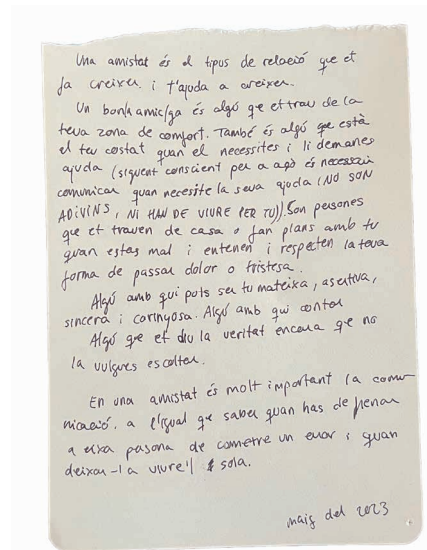 Una amistat és el tipus de relació que et
fa créixer i t'ajuda a créixer.
Un bonh amic/ga és algú que et trau de la
teva zona de comfort. També és algú que està
al teu costat quan el necessites i li demanes
ajuda (siguent conscient per a açò és necessari
comunicar quan necesite la seva ajuda (NO SON
ADIVINS, NI HAN DE VIURE PER TU)). Son persones
que et trauen de casa o fan plans amb tu
quan estas mal i entenen i respecten la teva
forma de passar dolor o tristesa.
Algú amb qui pots ser tu mateixa, asertiva,
sincera i carinyosa. Algú amb qui contar
Algú que et diu la veritat encara que no
la vulgues escoltar.
En una amistat és molt important la comu-
nicació, a l'igual que saber quan has de frenar
a eixa pasona de cometre un error i quan
deixar-la viure'l sola.
maig del 2023